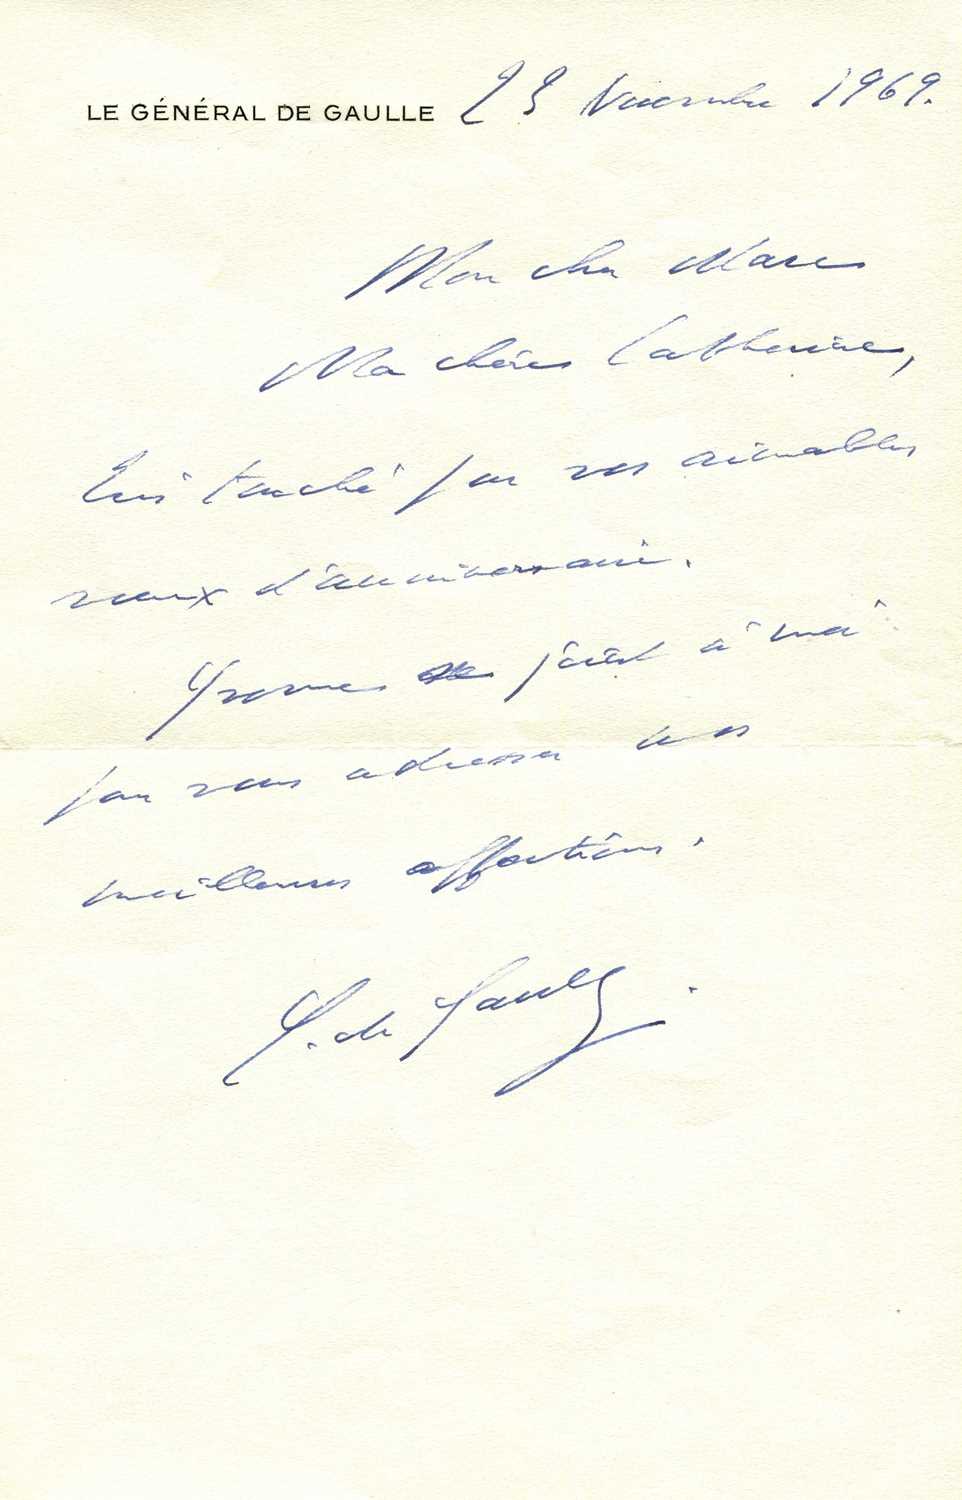 LE GÉNÉRAL DE GAULLE 23 Novembre 1969.
Mon cher Marc
Ma chère Catherine,
Très touché par vos aimables
vœux d'anniversaire.
Yvonne se joint à moi
pour vous adresser nos
meilleures affections.
C. de Gaulle.